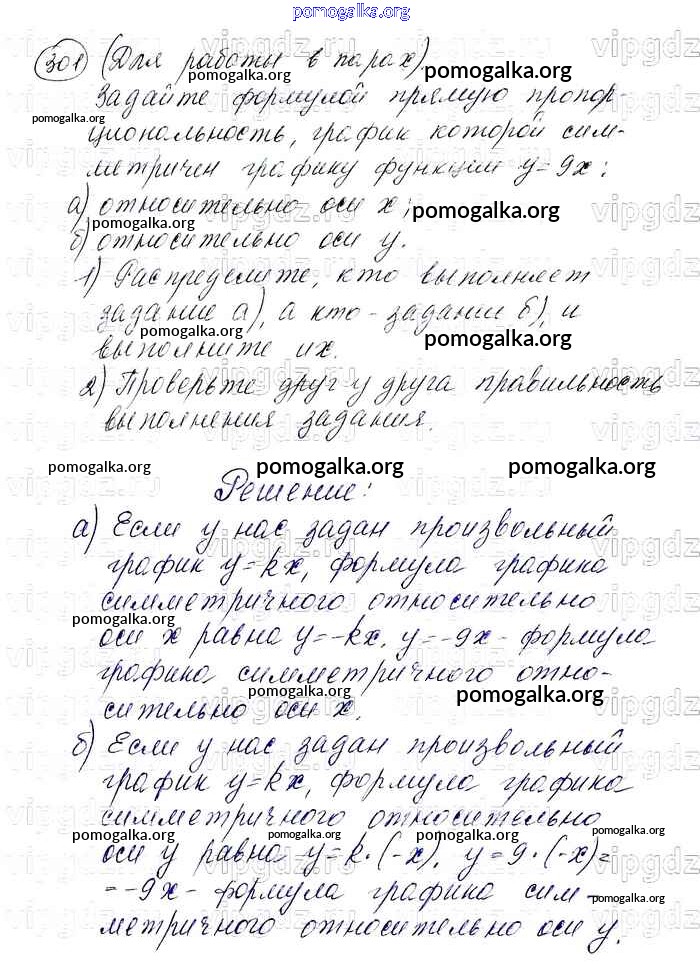 pomogalka.org
301 (Для работы в парах)
pomogalka.org pomogalka.org
Задайте формулой прямую пропор-
pomogalka.org
циональность, график которой сим-
метричен графику функции y=9x:
а) относительно оси x;
pomogalka.org pomogalka.org
б) относительно оси y.
1) Распределите, кто выполняет
задание а), а кто - задание б), и
pomogalka.org pomogalka.org
выполните их.
2) Проверьте друг у друга правильность
pomogalka.org
выполнения задания.
pomogalka.org pomogalka.org pomogalka.org
Решение:
а) Если у нас задан произвольный
график y=kx, формула графика
симметричного относительно
pomogalka.org
оси x равна y=-kx, y=-9x - формула
графика симметричного отно-
pomogalka.org pomogalka.org
сительно оси x.
б) Если у нас задан произвольный
график y=kx, формула графика
симметричного относительно
pomogalka.org pomogalka.org pomogalka.org pomogalka.org
оси y равна y=k·(-x), y=9·(-x)=
=-9x - формула графика сим-
pomogalka.org
метричного относительно оси y.
pomogalka.org